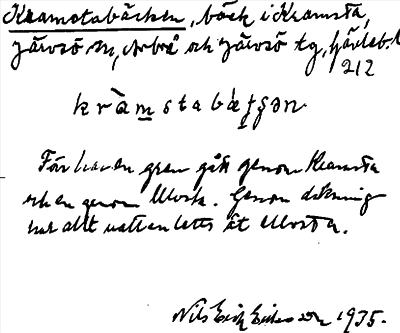 Kramstabäcken, bäck i Kramsta,
Järvsö sn, Arbrå och Järvsö tg, Gävleb. l.
212
kràmstabäkʃən
Förr har en gren gått genom Kramsta
och en genom Morsta. Genom dikning
har allt vatten letts åt Morsta.
Nils Erik Eriksson 1935.